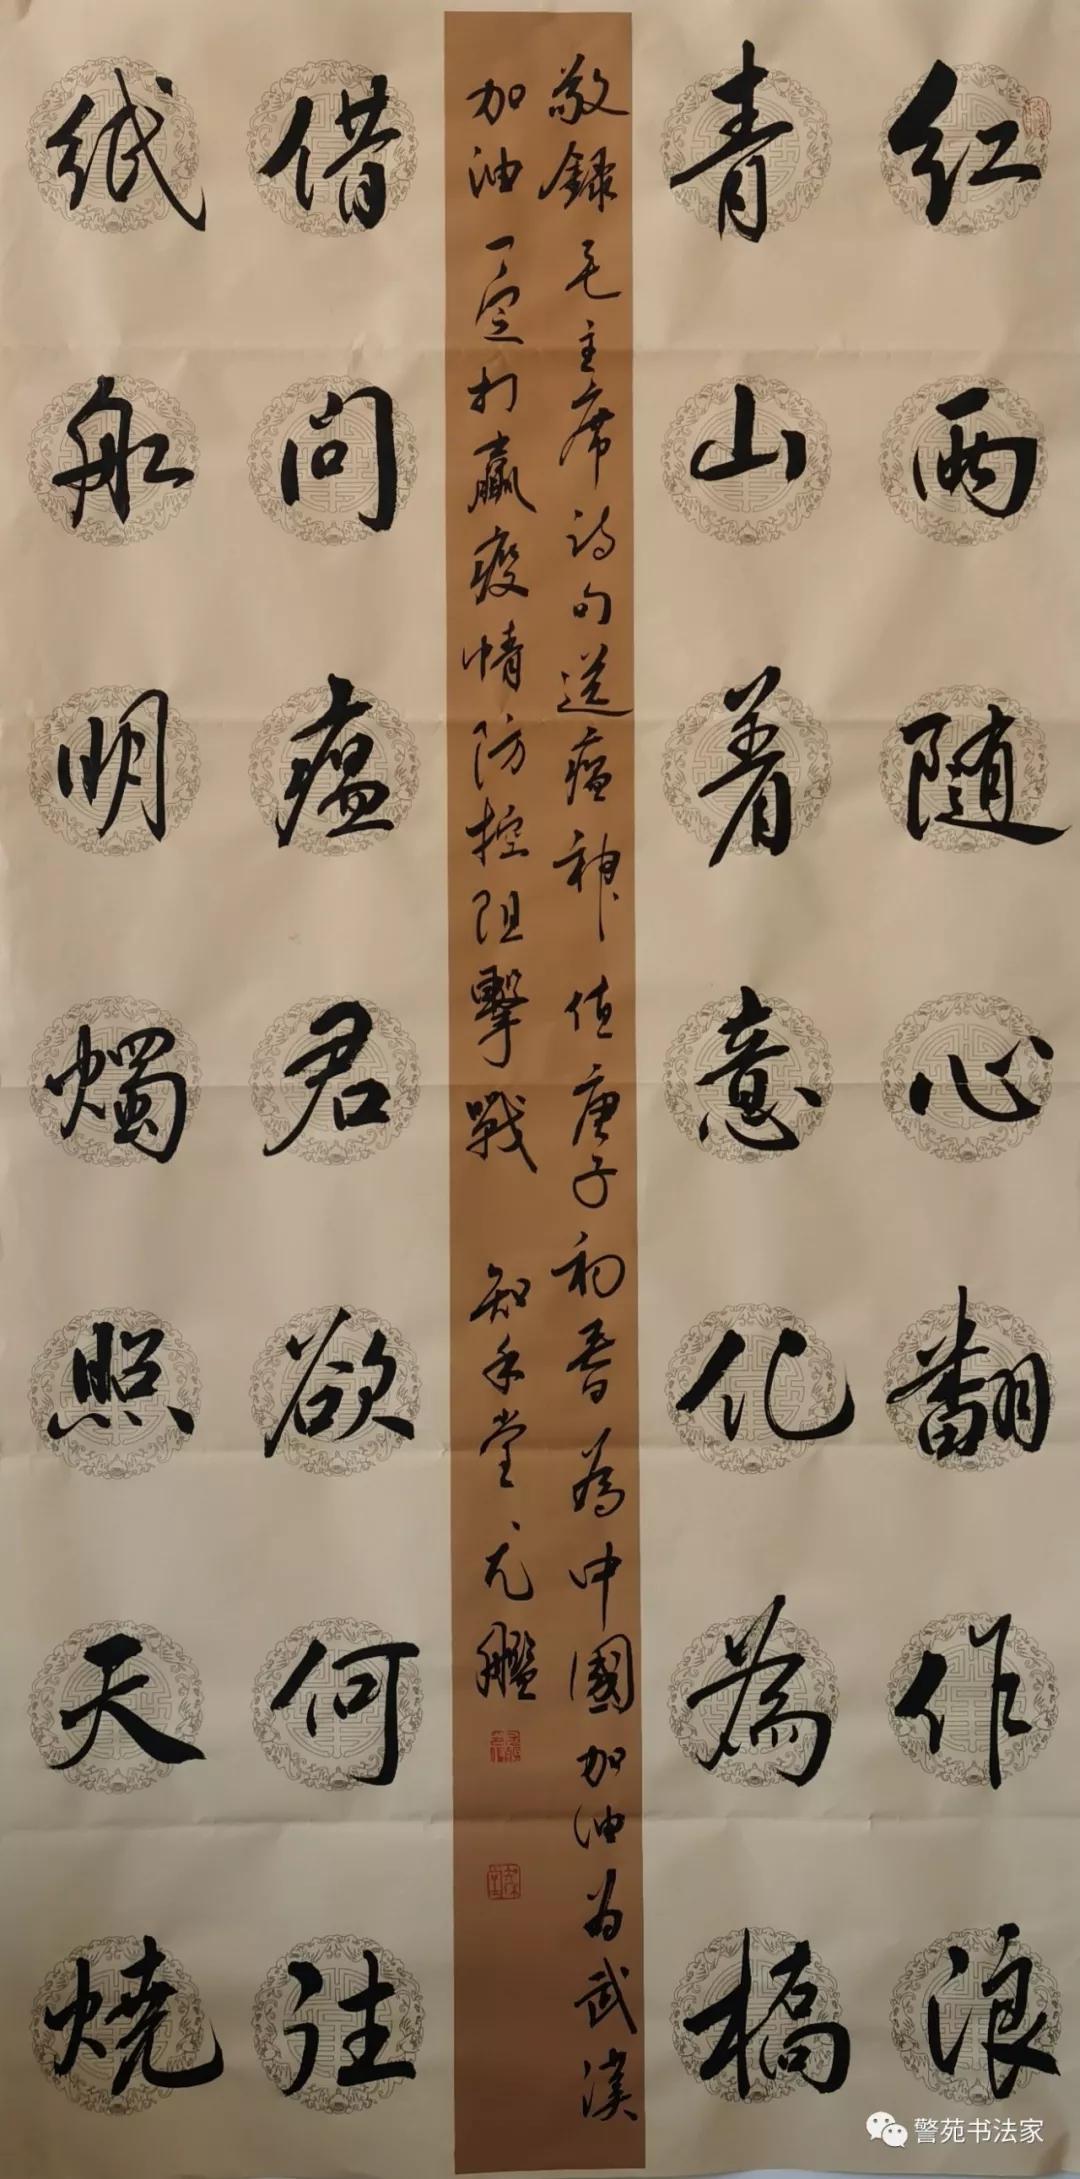 红雨随心翻作浪
青山着意化為橋
敬錄毛主席诗句送瘟神 值庚子初春為中國加油为武漢
加油一定打贏疫情防控阻擊戰 知禾堂元艦
借问瘟君欲何往
纸船明燭照天燒
警苑书法家